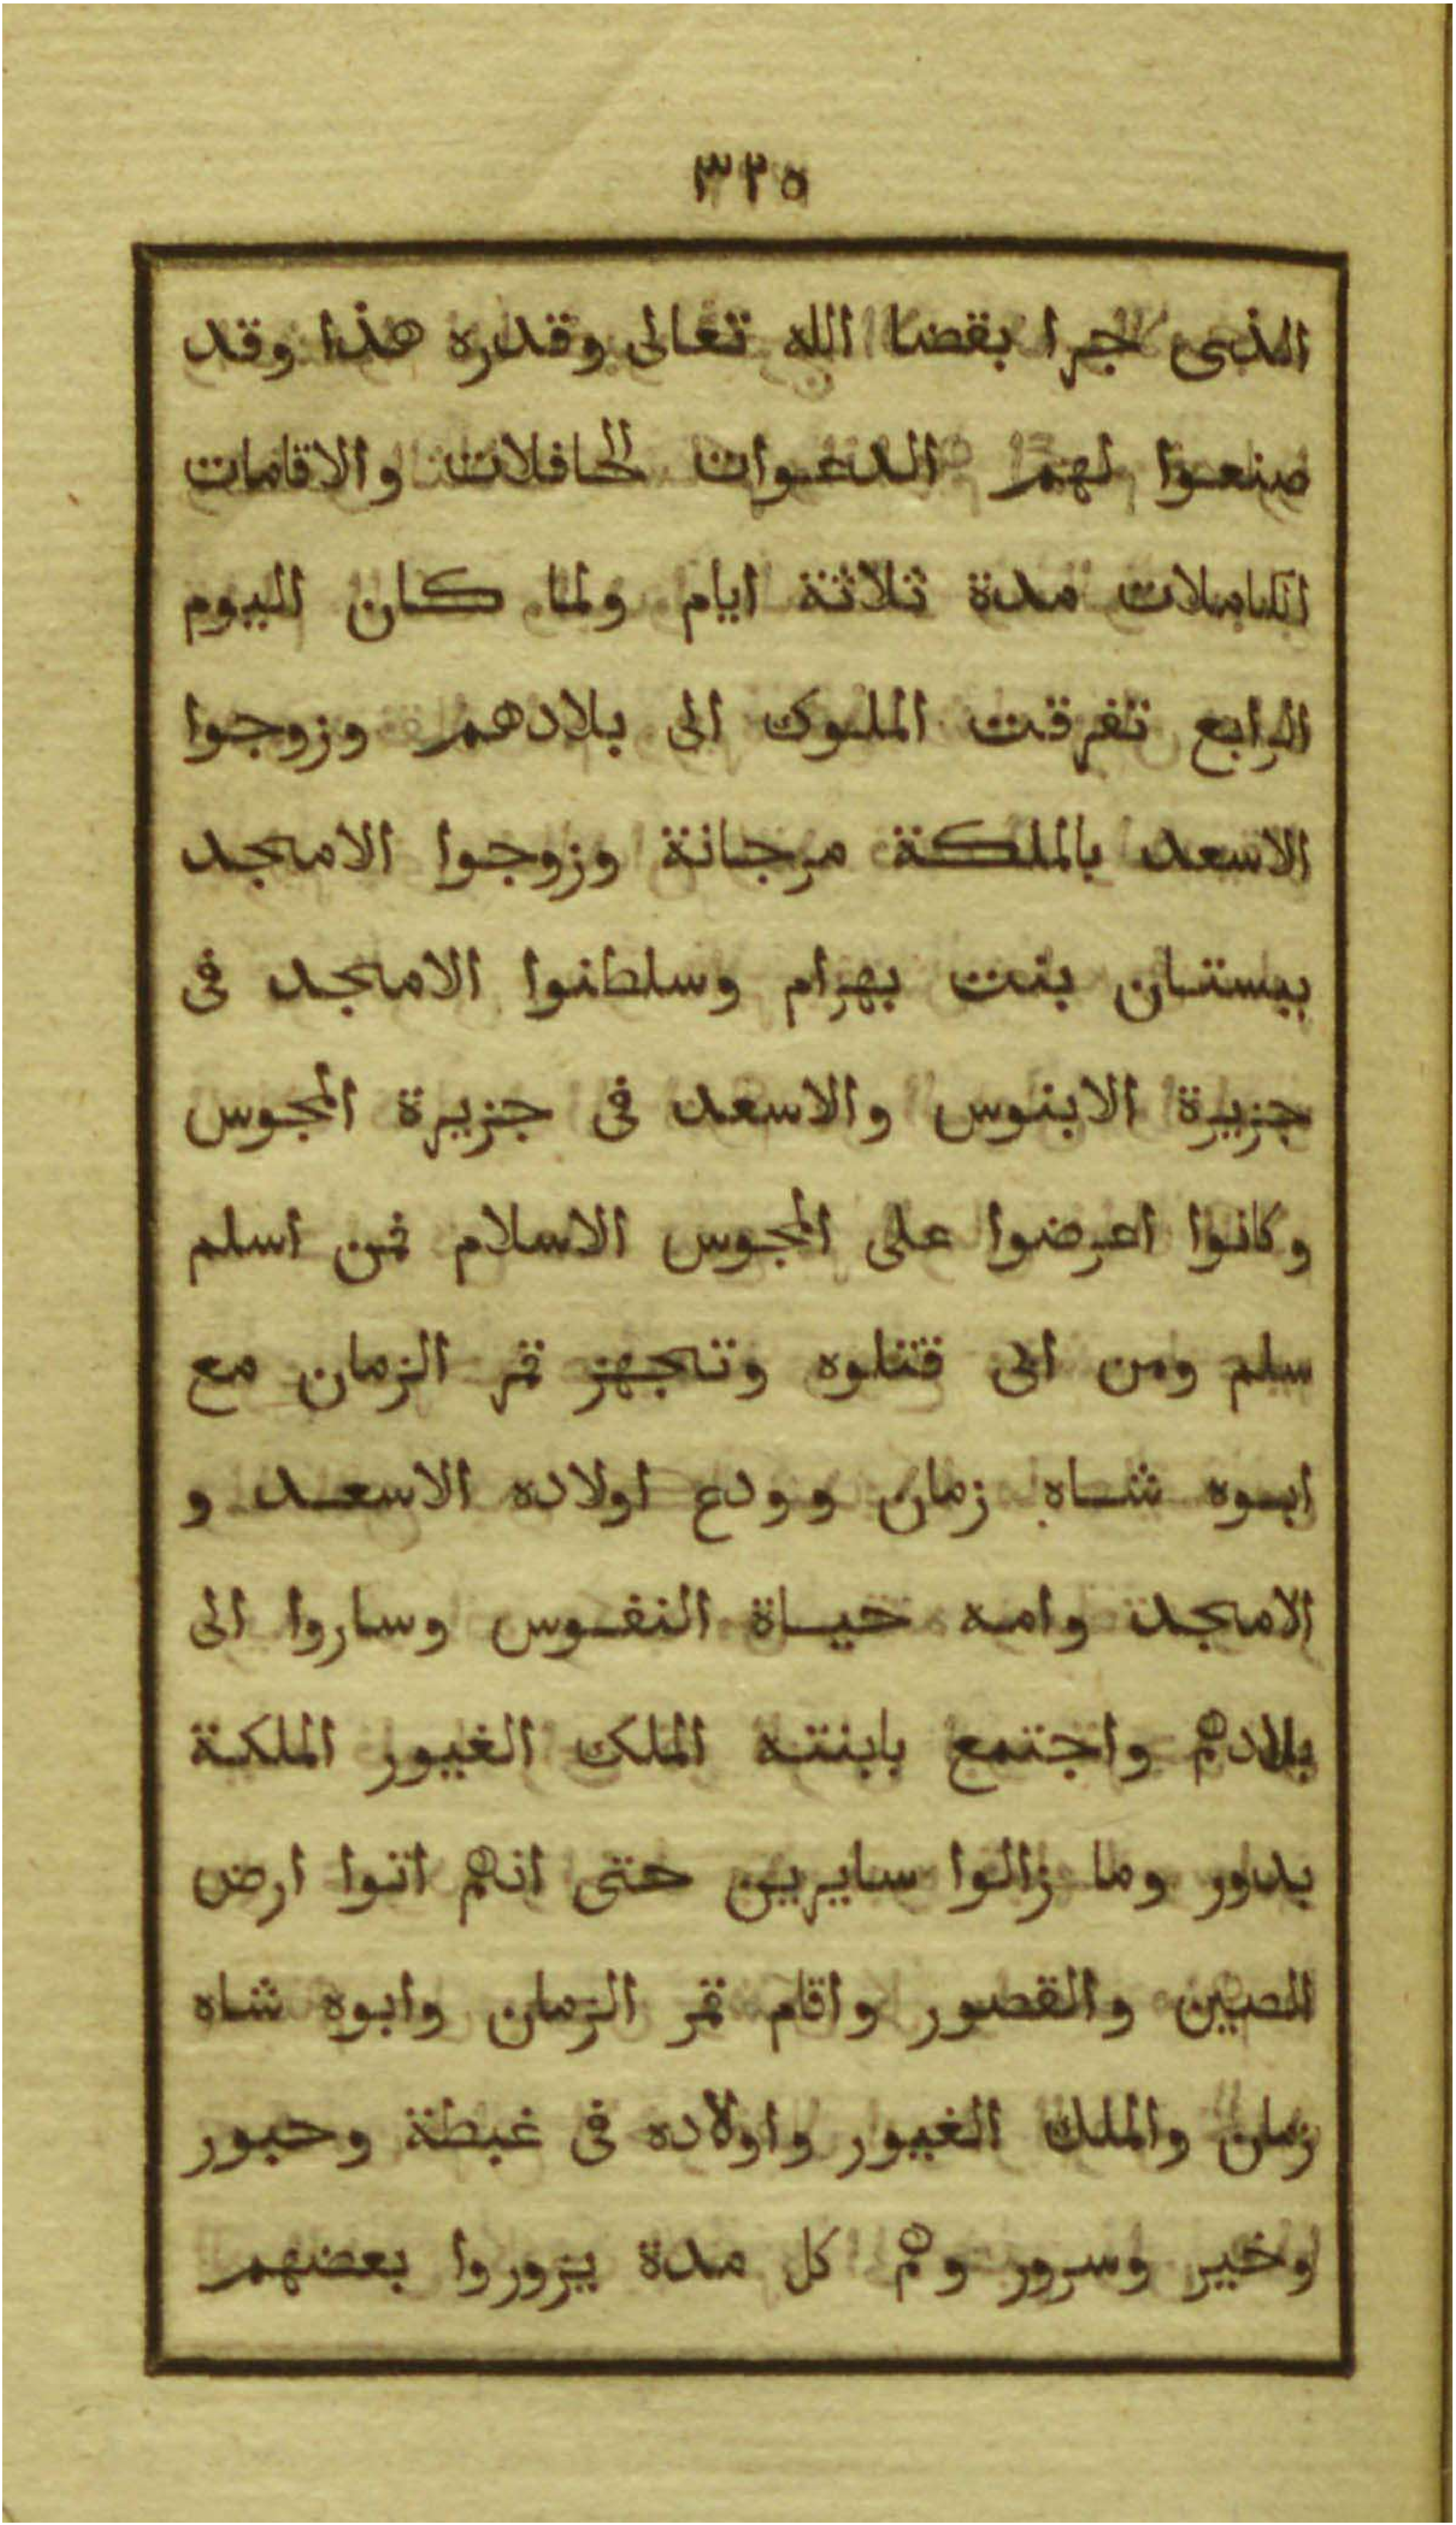 ٣٢٥
الذى جرا بقضا الله تعالى وقدره هذا وقد
صنعوا لهم الدعوات الحافلات والاقامات
الكاملات مدة ثلاثة ايام ولما كان اليوم
الرابع تفرقت الملوك الى بلادهم وزوجوا
الاسعد بالملكة مرجانة وزوجوا الامجد
ببستان بنت بهرام وسلطنوا الامجد فى
جزيرة الابنوس والاسعد فى جزيرة المجوس
وكانوا اعرضوا على المجوس الاسلام فمن اسلم
سلم ومن ابى قتلوه وتجهز قمر الزمان مع
ابوه شاه زمان وودع اولاده الاسعد و
الامجد وامه حياة النفوس وساروا الى
بلادهم واجتمع بابنته الملك الغيور الملكة
بدور وما زالوا سايرين حتى انهم اتوا ارض
الصين والقصور واقام قمر الزمان وابوه شاه
زمان والملك الغيور واولاده فى غبطة وحبور
وخير وسرور وهم كل مدة يزوروا بعضهم